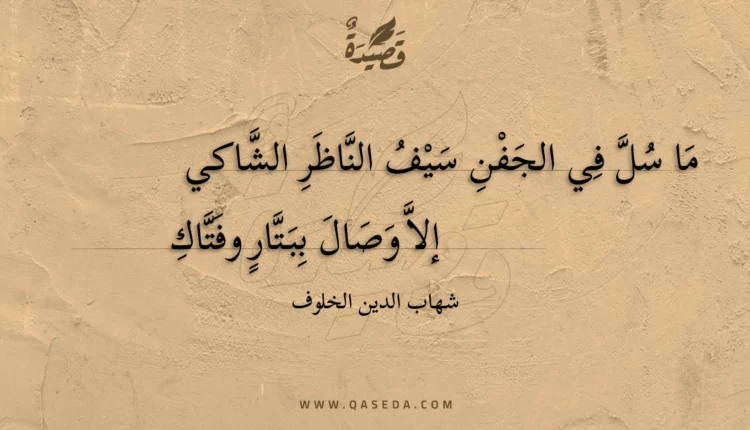 قَصِيْدَةٌ
مَا سُلَّ فِي الجَفْنِ سَيْفُ النَّاظَرِ الشَّاكي
إلاَّ وَصَالَ بِبَتَّارٍ وفَتَّاكِ
شهاب الدين الخلوف
WWW.QASEDA.COM